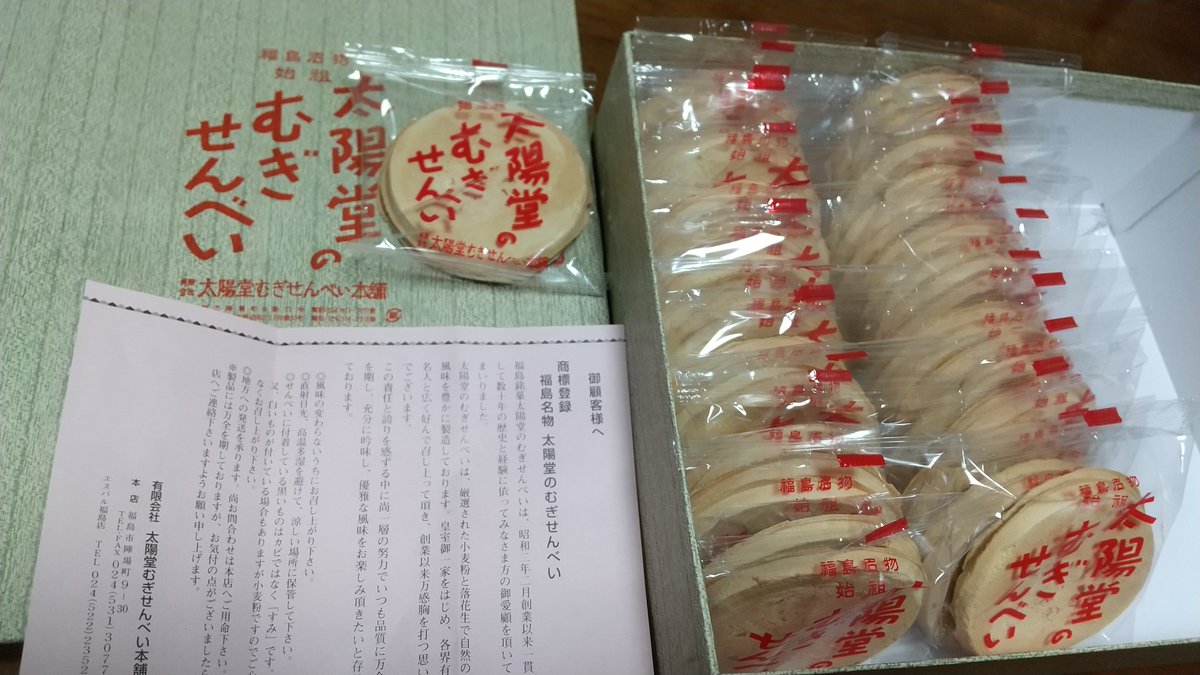 福島名物
始祖
太陽堂の
むぎ
せんべい
有限会社 太陽堂むぎせんべい本舗
太陽堂の
むぎ
せんべい
太陽堂むぎせんべい本舗
福島名物
始祖
福島名物
始祖
太陽堂
せん
福島名物
始祖
太陽堂の
むぎ
せんべい
御顧客様へ
商標登録
福島名物 太陽堂のむぎせんべい
福島銘菓太陽堂のむぎせんべいは、昭和二年二月創業以来一貫
して数十年の歴史と経験に依ってみなさま方の御愛顧を頂いて
まいりました
太陽堂のむぎせんべいは、厳選された小麦粉と落花生で自然の
風味を豊かに製造しております。皇室御一家をはじめ、各界有
名人と広く好んで召し上って頂き、創業以来万感胸を打つ思い
でございます。
この責任と誇りを感ずる中に尚一層の努力でいつも品質に万全
を期し、充分に吟味し、優雅な風味をお楽しみ頂きたいと存
ております。
◎風味の変わらないうちにお召し上がり下さい。
◎直射日光、高温多湿を避けて、涼しい場所に保管して下さい。
◎せんべいに付着している黒いものはカビではなく「すみ」です。
又、白いものが付いている場合もありますが小麦粉ですのでご
なくお召し上がり下さい。
◎地方への発送を承ります。尚お問合わせは本店へご用命下さい。
※製品には万全を期しておりますが、お気付の点がございました
店へご連絡下さいますようお願い申し上げます。
有限会社 太陽堂むぎせんべい本舗
本店 福島市陣場町9-30
TEL・FAX 024(531)3077
エスパル福島店 TEL 024(522)2352